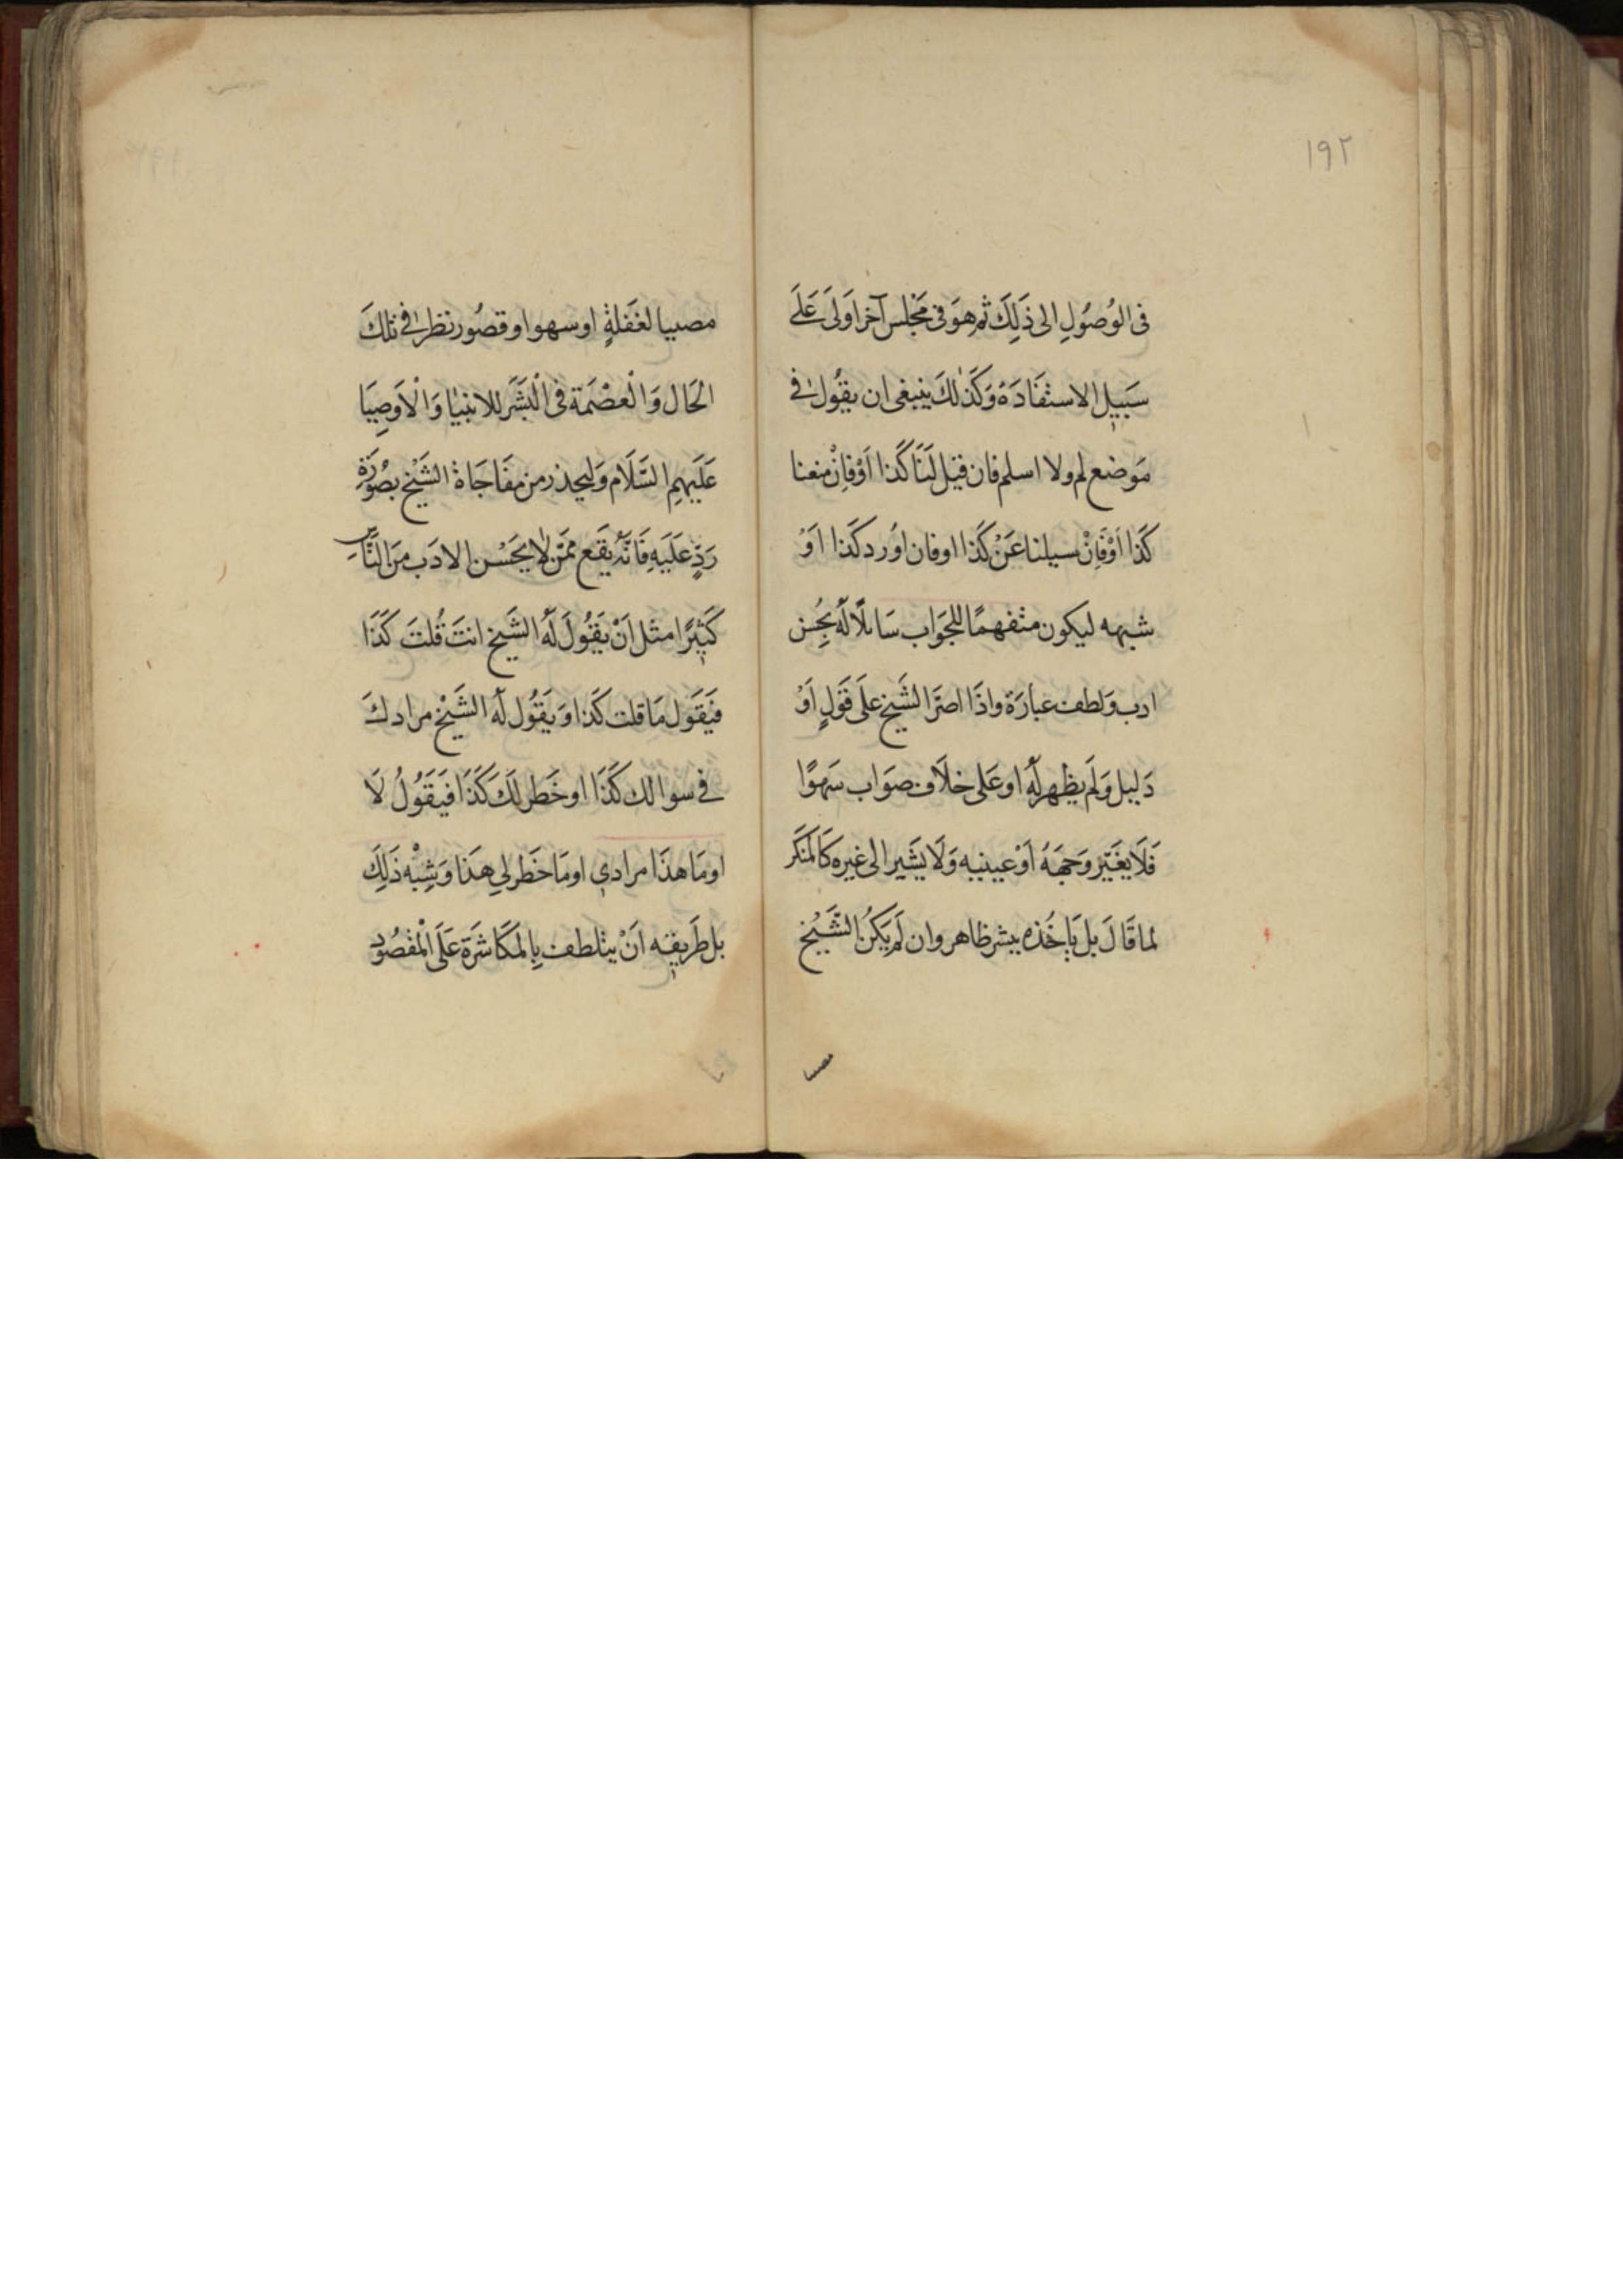 ١٩٢
فى الوُصُولِ الى ذَلِكَ ثم هوَ فى مَجْلس آخر اَولَى عَلَى
سَبيل الاستفَادَة وَكَذلكَ ينبغى ان يقُول فى
مَوضع لم ولا اسلم فان قيل لَنَا كَذا اَوْ فاِنْ منعنا
كَذا اَوْ فَاِنْ سيلنا عَنْ كَذا او فان اُورد كَذا اَوْ
شبهه ليكون متفهمًا للجَوَاب سَائلًا لَهُ بحُسن
ادب وَلطف عبارَة واذَا اصرَّ الشَيخ عَلَى قَولٍ اَوْ
دَليل وَلَم يظهر لَهُ او عَلى خلَاف صوَاب سَهوًا
فَلَا يغَيّر وَجهَهُ اَوْ عينيه وَلَا يشَير الى غيره كَالمنكر
لما قَالَ بل يَاخُذه ببشر ظاهر وان لَم يَكُن الشَّيْخ
مصيبا
مصيبا لغَفلةٍ او سهو او قصُور نظر فى تلكَ
الحَال وَالْعصْمَة فى الْبَشَر للانبيا وَالْاَوصِيَا
عَلَيهِم السَّلَام وَليحذر من مفَاجَاة الشَيْخ بصُورَةِ
رَدٍّ عَلَيهِ فَانَّه يقَع ممَّن لا يحَسْن الادَب مِنَ النَّاسِ
كَثِيرًا مثل اَنْ يَقُولَ لَهُ الشَيخ انتَ قُلتَ كَذَا
فَيَقَول مَا قلت كَذا وَيَقُول لَهُ الشَيْخ مرادكَ
فى سوالك كَذَا او خَطر لَكَ كَذَا فيَقَوُلُ لَا
او مَا هذَا مرادى او مَا خَطر لي هذَا وَشِبْه ذَلِكَ
بل طَريقه اَنْ يتلطف بِالمكَاشرَة عَلَى الْمقصُود